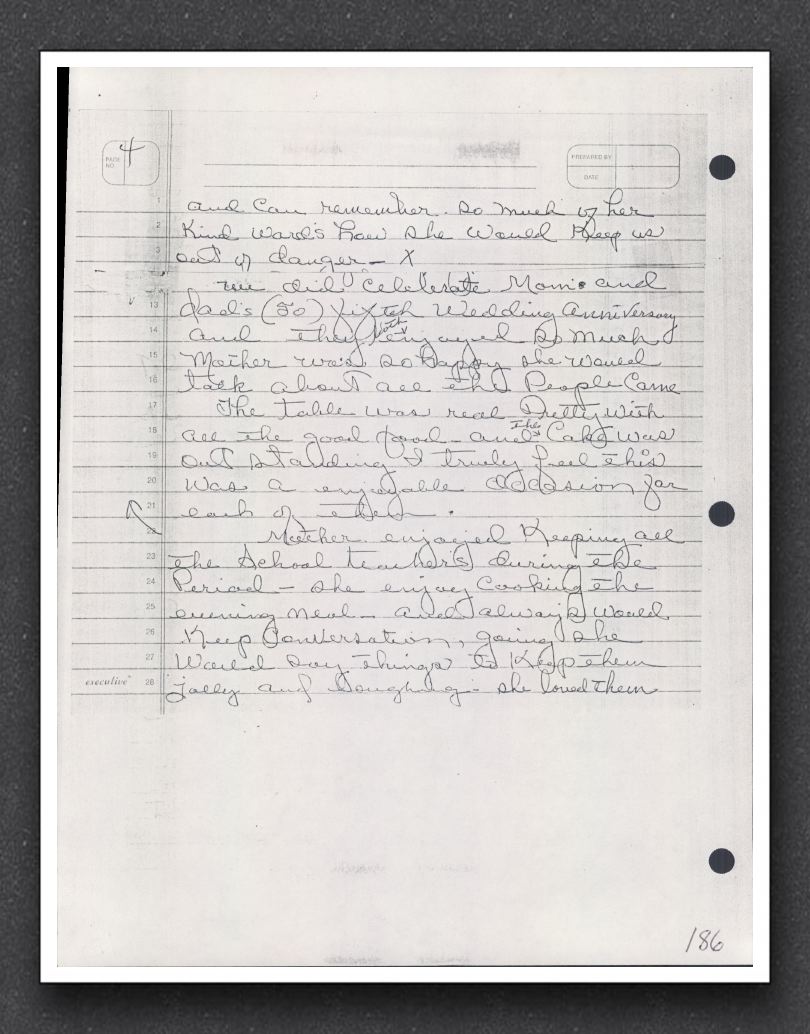 PAGE NO. 4
PREPARED BY
DATE
1 and Can remember so much of her
2 Kind Ward's how she would Keep us
3 out of danger - X
we did Celebrate Mom's and
13 dad's (50) fixteh Wedding anniversary
14 and they both enjoyed so much
15 Mother was so happy she would
16 talk about all the People Came
17 The table was real Pretty With
18 all the good food - and the Cake was
19 out standing I truly feel this
20 was a enjoyable occasion for
21 each of them.
22 Mother enjoied Keeping all
23 the School teacher's during the
24 Period - she enjoy Cooking the
25 evening meal - and always would
26 Keep Conversation, going she
27 Would say things to Keep them
executive 28 jolly and laughing. she loved them
186